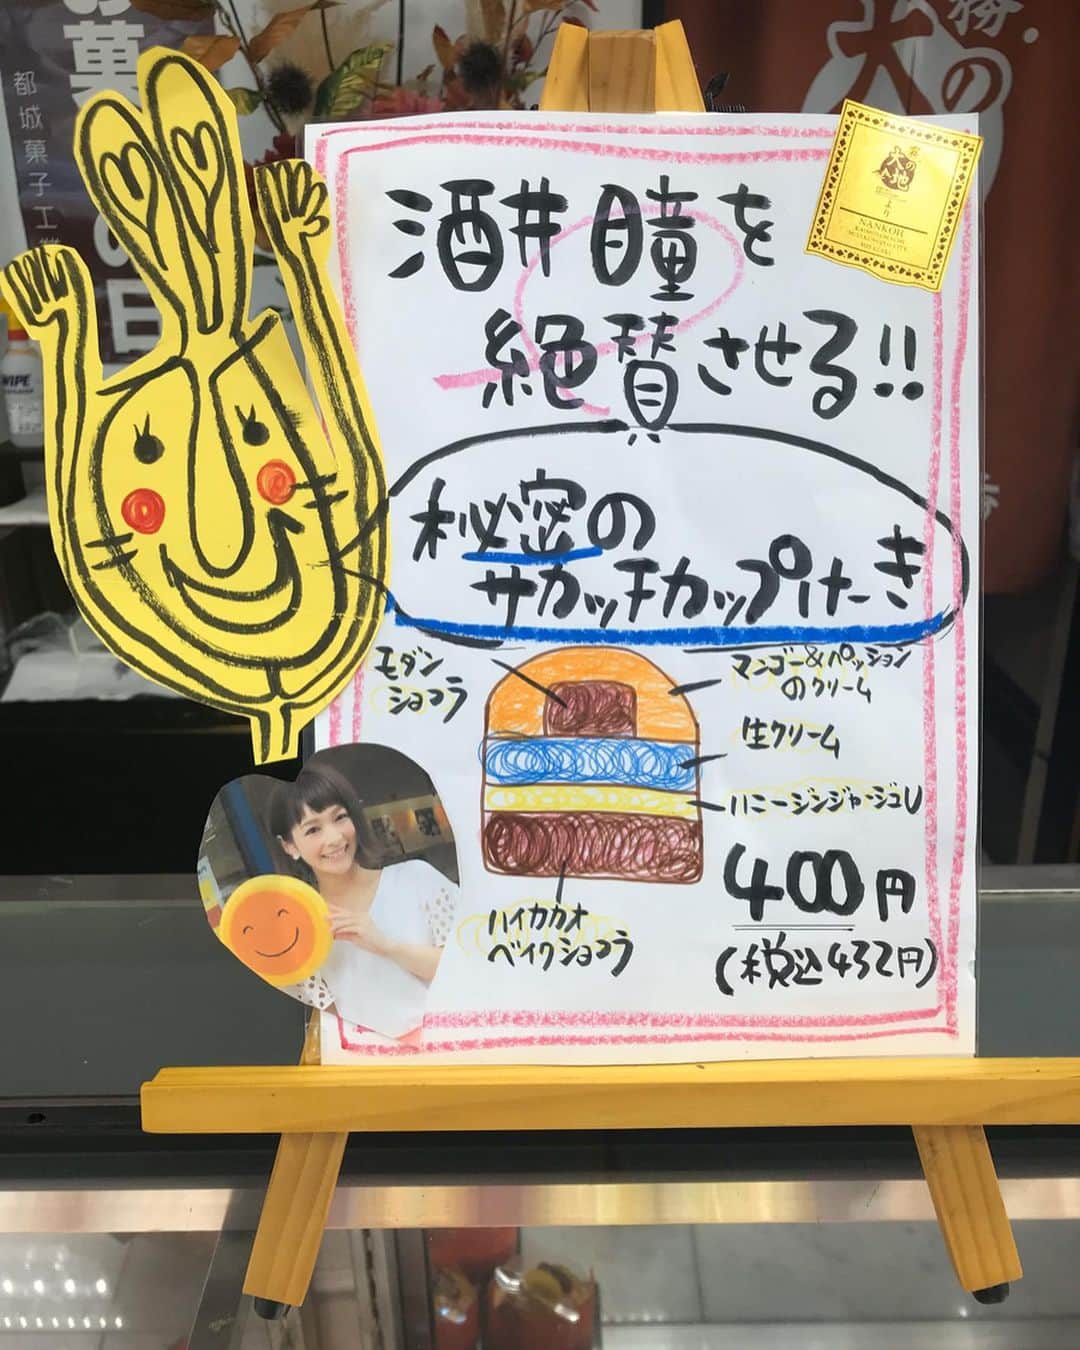 お菓
の日
都城菓子工業
WIPE
酒井瞳を
絶賛させる!!
秘密の
サカッチカップけーき
モダン
ショコラ
マンゴー&パッション
のクリーム
生クリーム
ハニージンジャージュレ
ハイカカオ
ベイクショコラ
400円
(税込432円)
より
NANKOH